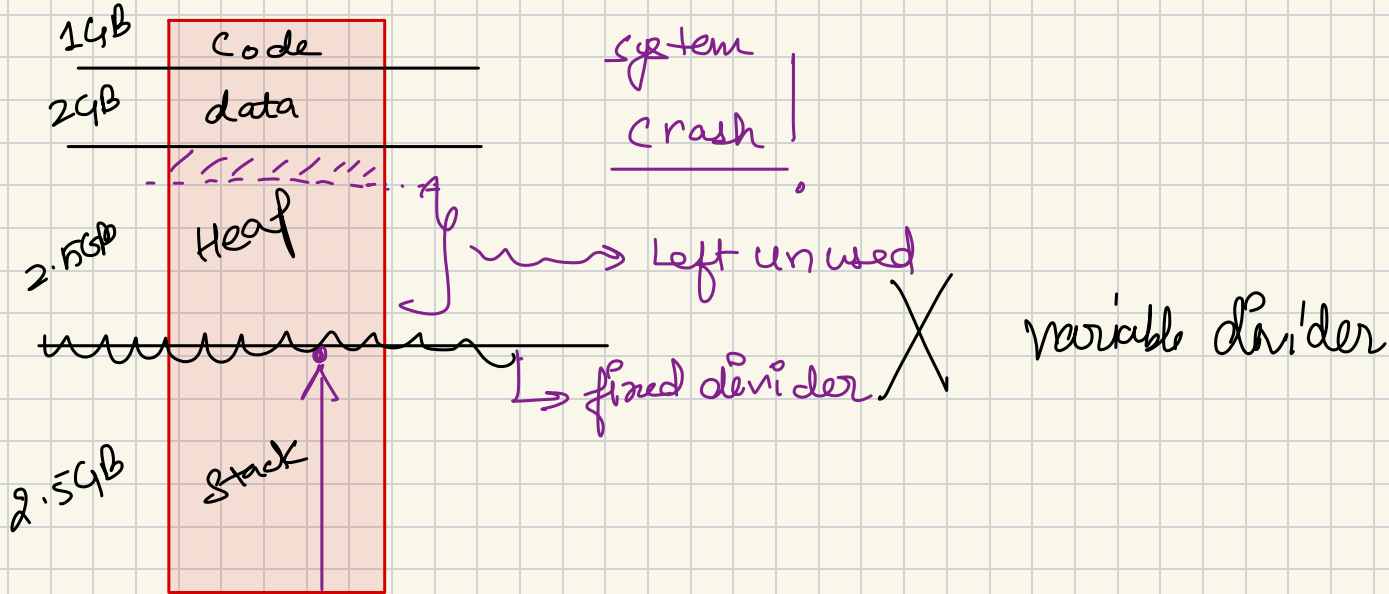 1GB
Code
2GB
data
2.5GB
Heap
2.5GB
Stack
system
crash!
Left unused
fixed divider
variable divider